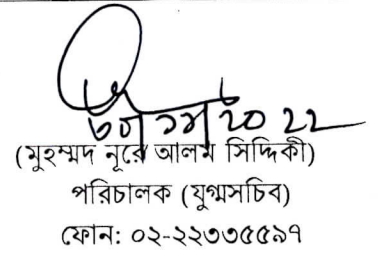 ৩০/১১/২০২২
(মুহম্মদ নূরে আলম সিদ্দিকী)
পরিচালক (যুগ্মসচিব)
ফোন: ০২-২২৩৩৫৫৯৭